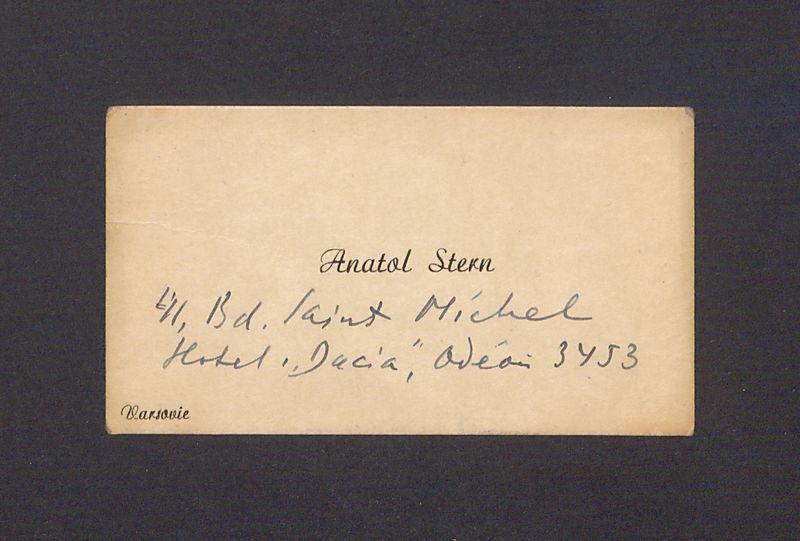 Anatol Stern
41, Bd. Saint Michel
Hotel „Dacia”, Odéon 3453
Varsovie